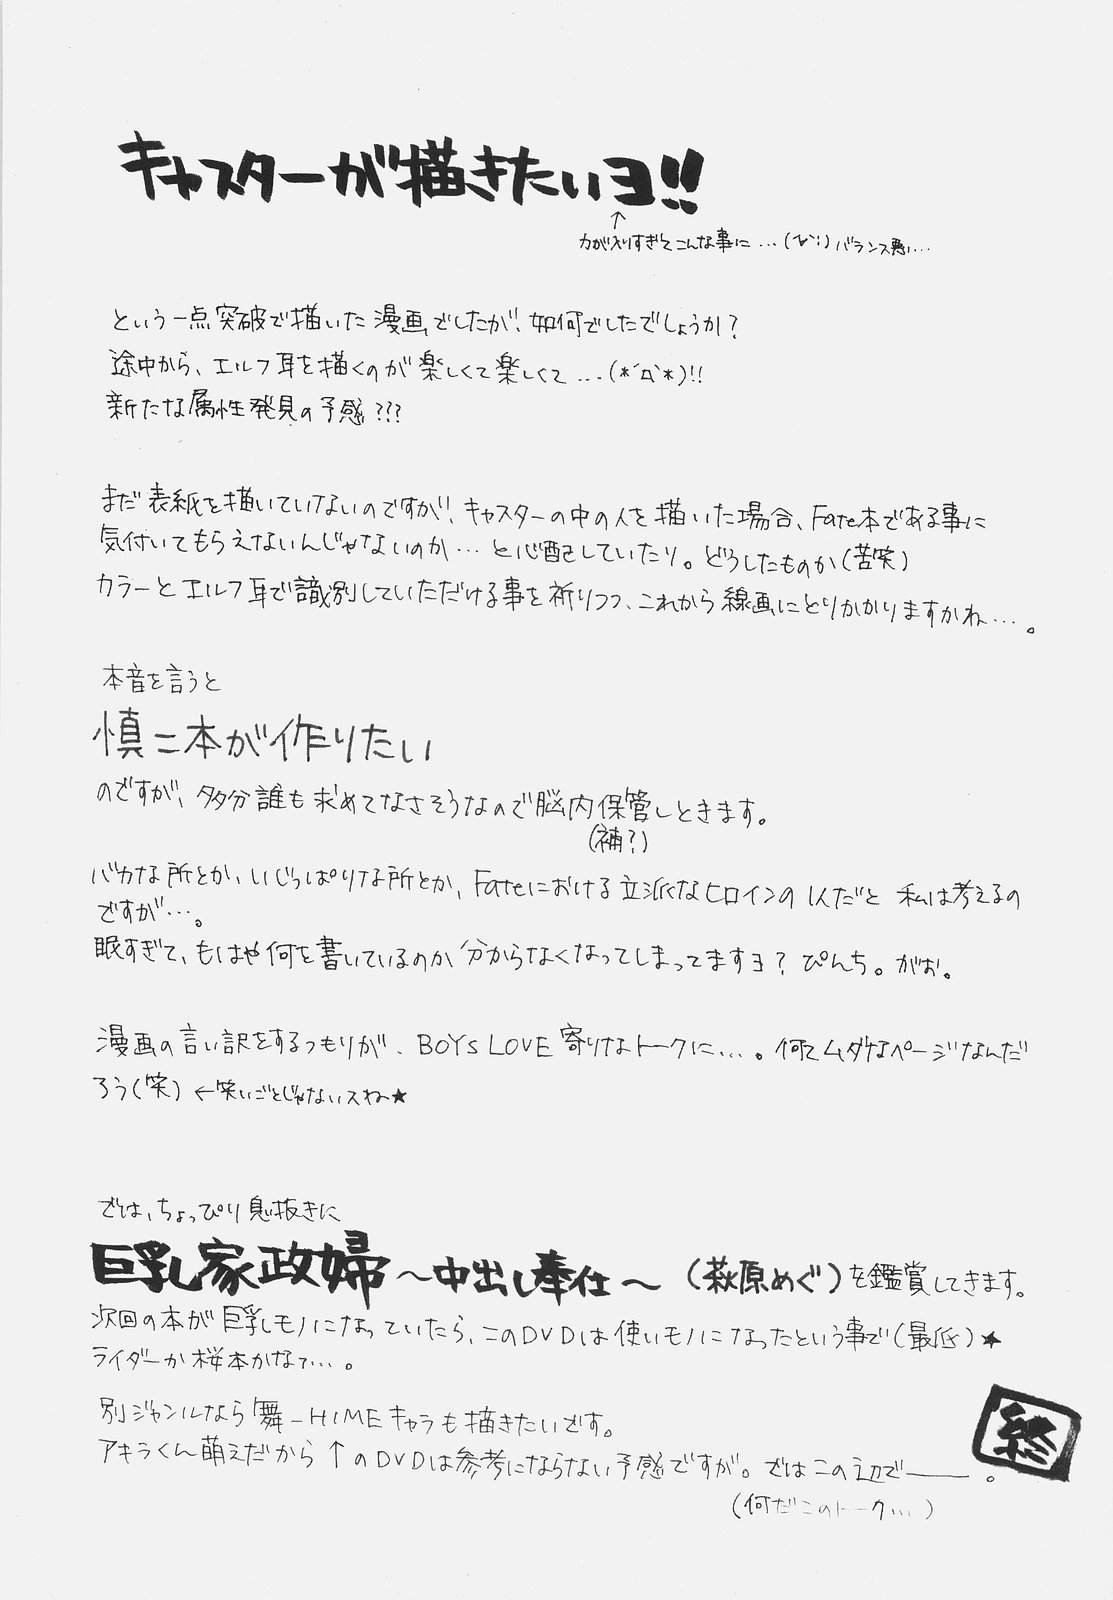 キャスターが描きたいヨ!!
↑
力が入りすぎてこんな事に…(´∀`;)バランス悪い…
という一点突破で描いた漫画でしたが、如何でしたでしょうか?
途中から、エルフ耳を描くのが楽しくて楽しくて…(*´Д`*)!!
新たな属性発見の予感???
まだ表紙を描いていけないのですが、キャスターの中の人を描いた場合、Fate本である事に
気付いてもらえないんじゃないのか…と心配していたり。どうしたものか(苦笑)
カラーとエルフ耳で識別していただける事を祈りつつ、これから線画にとりかかりますかね…。
本音を言うと
慎二本が作りたい
のですが、多分誰も求めてなさそうなので脳内保管しときます。
(補?)
バカな所とか、いじっぱりな所とか、Fateにおける立派なヒロインの1人だと私は考えるの
ですが…。
眠すぎて、もはや何を書いているのか分からなくなってしまってますヨ?ぴんち。がお。
漫画の言い訳をするつもりが、BOYS LOVE寄りなトークに…。何てムダなページなんだ
ろう(笑)←笑いごとじゃないスね★
では、ちょっぴり息抜きに
巨乳家政婦～中出し奉仕～(萩原めぐ)を鑑賞してきます。
次回の本が巨乳モノになっていたら、このDVDは使いモノになったという事で(最低)★
ライダーか桜本かなァ…。
別ジャンルなら舞-HIMEキャラも描きたいです。
アキラくん萌えだから↑のDVDは参考にならない予感ですが。ではこの辺で――。
(何だこのトーク…)
終